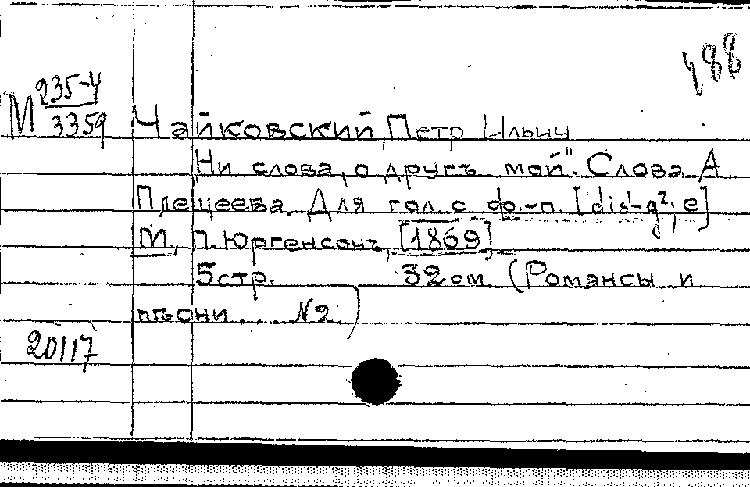 488
М 235-4
3359
Чайковский, Петр Ильич
"Ни слова, о другъ мой". Слова А.
Плещеева. Для гол. с ф.-п. [dis¹-g²; e]
М., П. Юргенсонъ, [1869]
5 стр. 32 см. (Романсы и
пѣсни.... №2)
20117